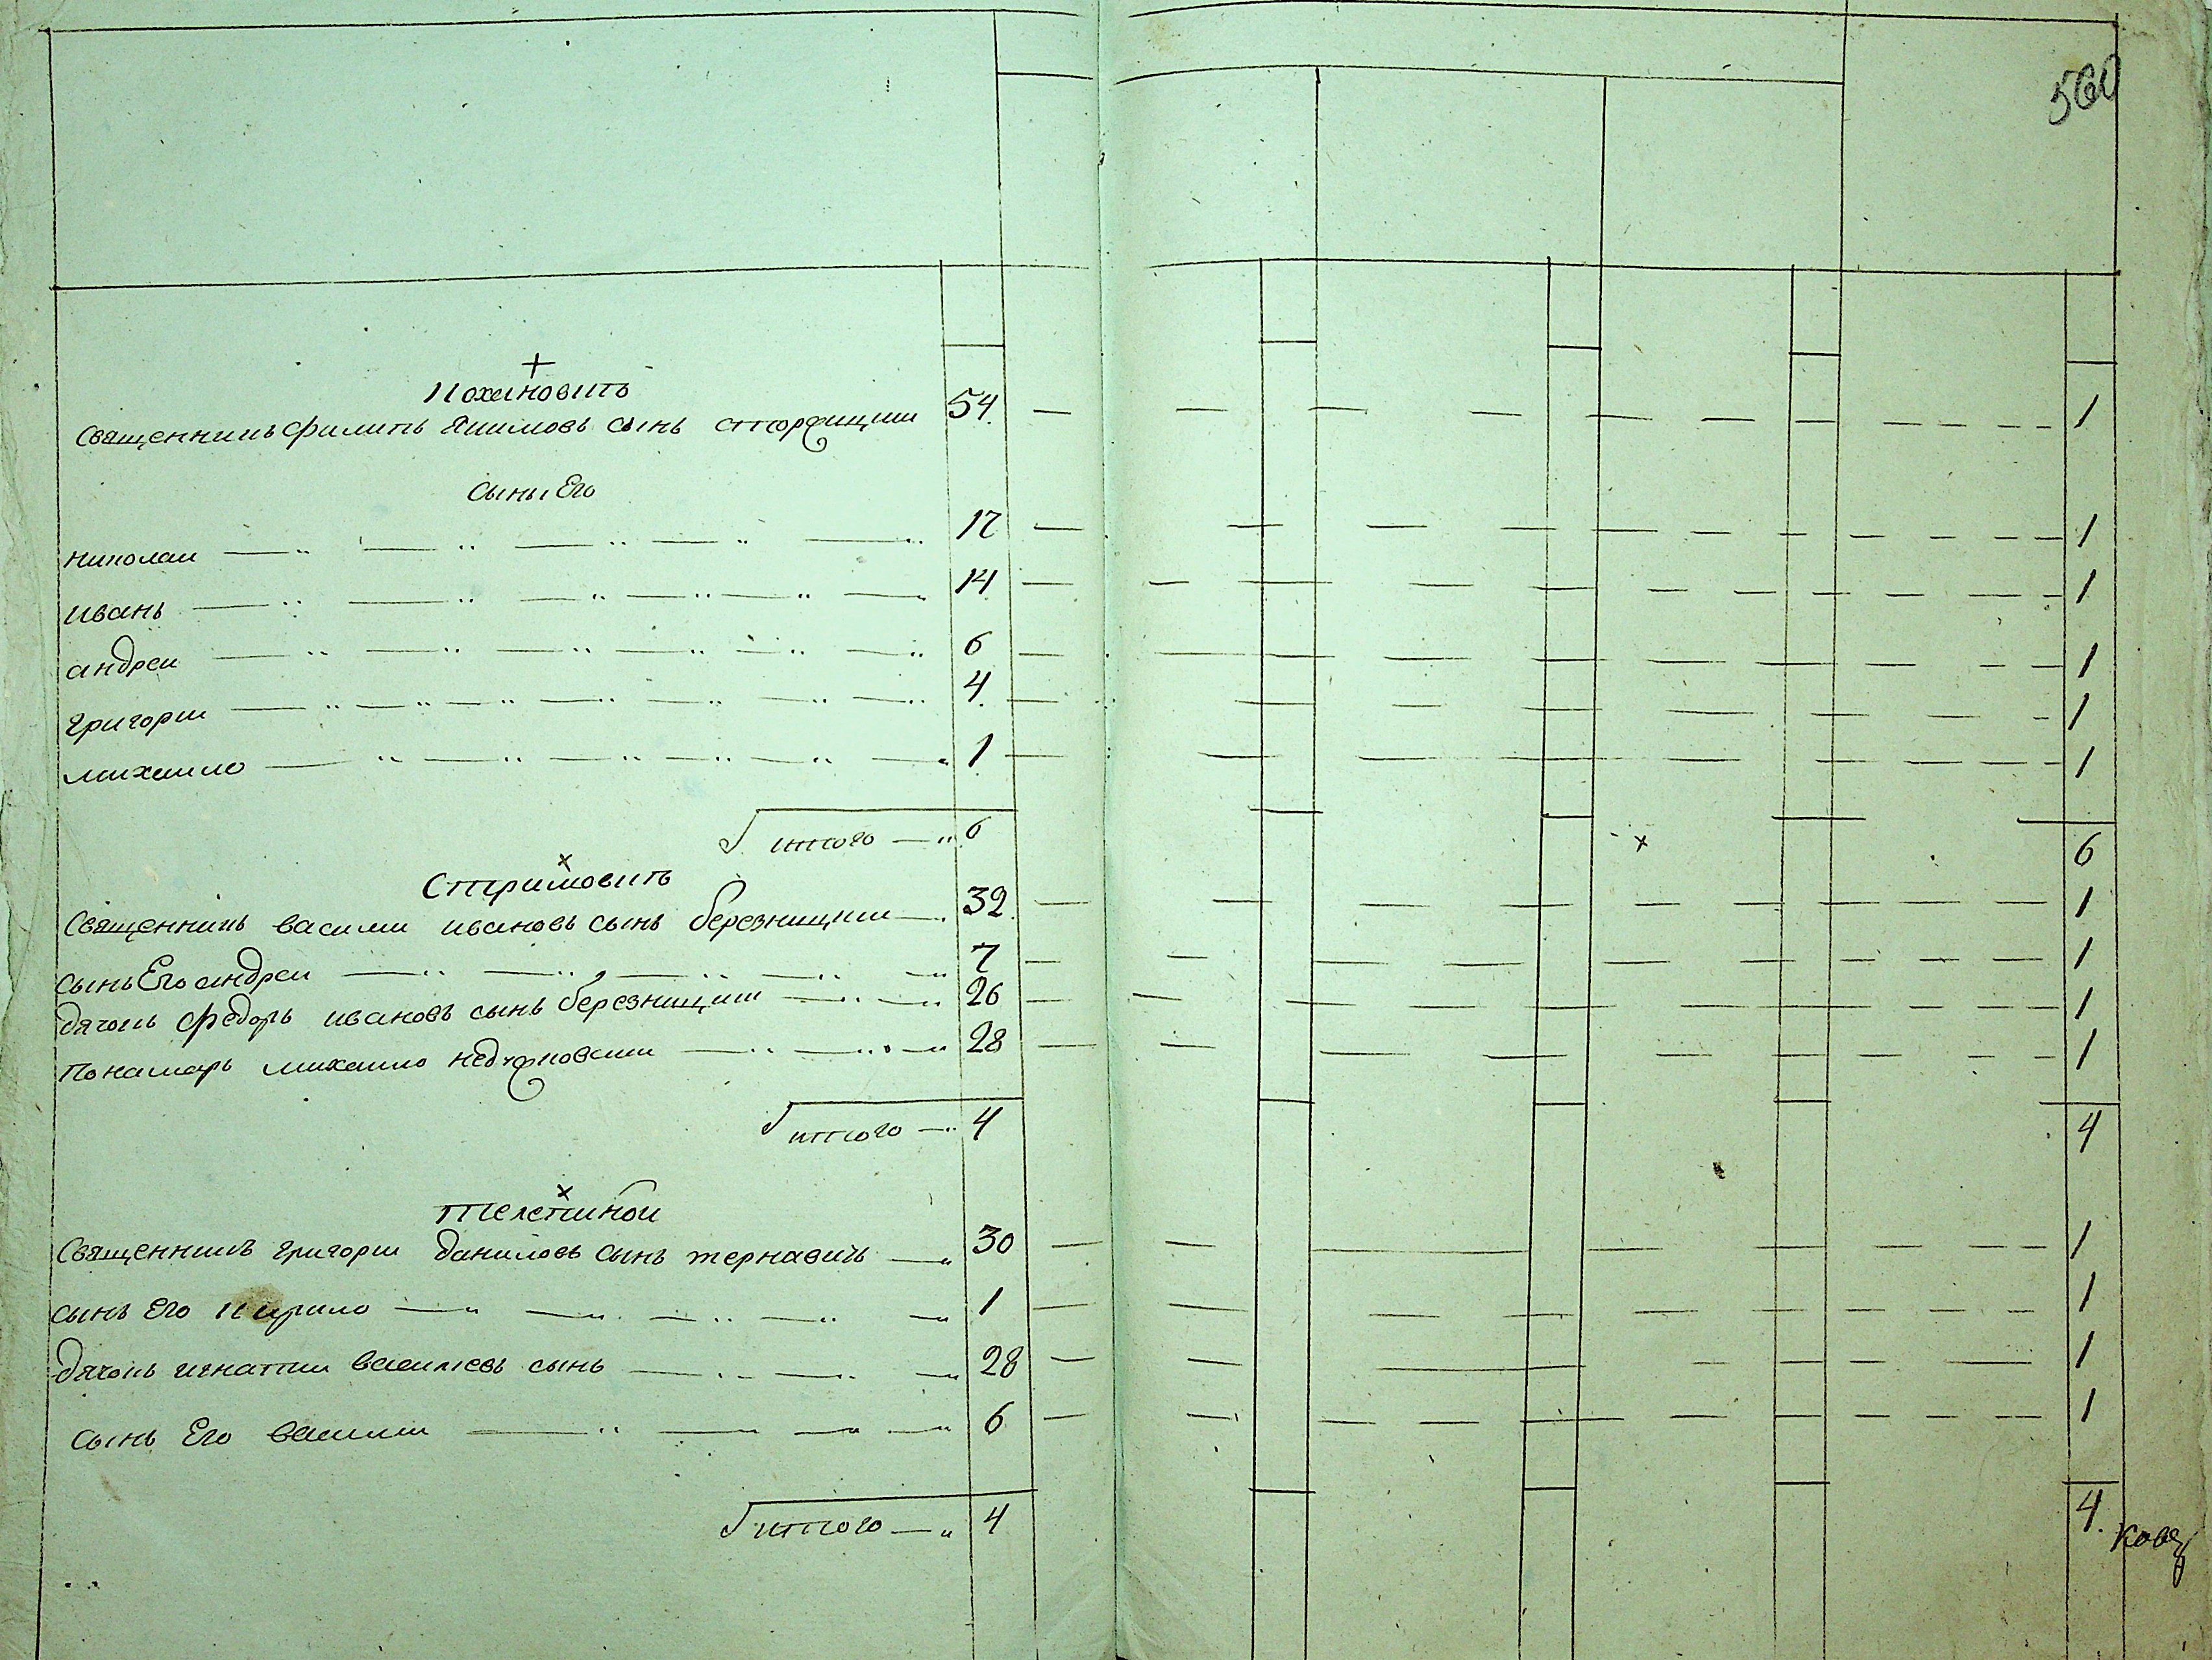 560
Кохановкѣ
Священникъ филипъ Якимовъ сынъ 54 1
сыны Его
николаи 17 1
иванъ 14 1
андреи 6 1
григории 4 1
михаило 1 1
итого 6 6
Стрижовкѣ
Священникъ васили ивановъ сынъ березницкии 32 1
сынъ Его андреи 7 1
дячокъ федоръ ивановъ сынъ березницкии 26 1
понамарь михаило 28 1
итого 4 4
Священникъ григории даниловъ сынъ 30 1
сынъ Его Кирило 1 1
дячокъ игнатии василиевъ сынъ 28 1
сынъ Его васили 6 1
итого 4 4